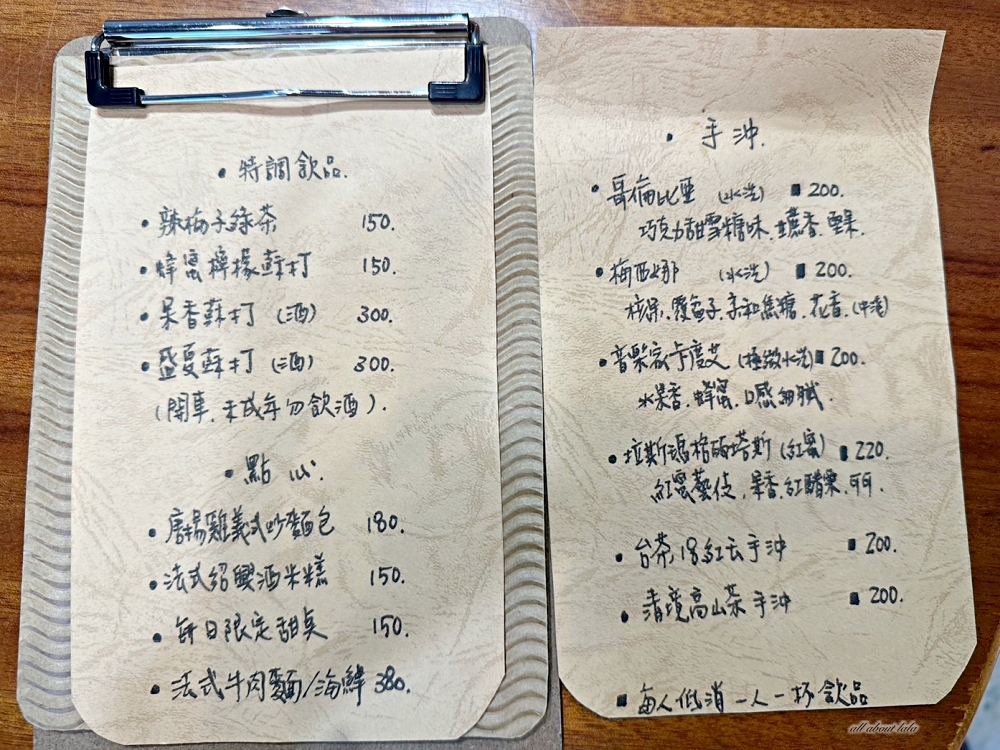 • 特調飲品.
• 辣梅子綠茶 150.
• 蜂蜜檸檬蘇打 150.
• 果香蘇打 (酒) 300.
• 盛夏蘇打 (酒) 300.
(開車.未成年勿飲酒).
• 點心.
• 唐揚雞義式炒麵包 180.
• 法式紹興酒米糕 150.
• 每日限定甜点 150.
• 法式牛肉麵/海鮮 380.
• 手沖.
• 哥倫比亞 (水洗) 200.
巧克力甜雪糖味.香.堅果.
• 梅西娜 (水洗) 200.
核果.覆盆子.焦糖.花香.
• 音樂家卡度艾 (極緻水洗) 200.
水果香.蜂蜜.口感細膩.
• 拉斯瑪格麗塔斯 (紅蜜) 220.
紅蜜藝伎.果香.紅醋栗.
• 台茶18紅玉手沖 200.
• 清境高山茶手沖 200.
每人低消一人一杯飲品
all about lala